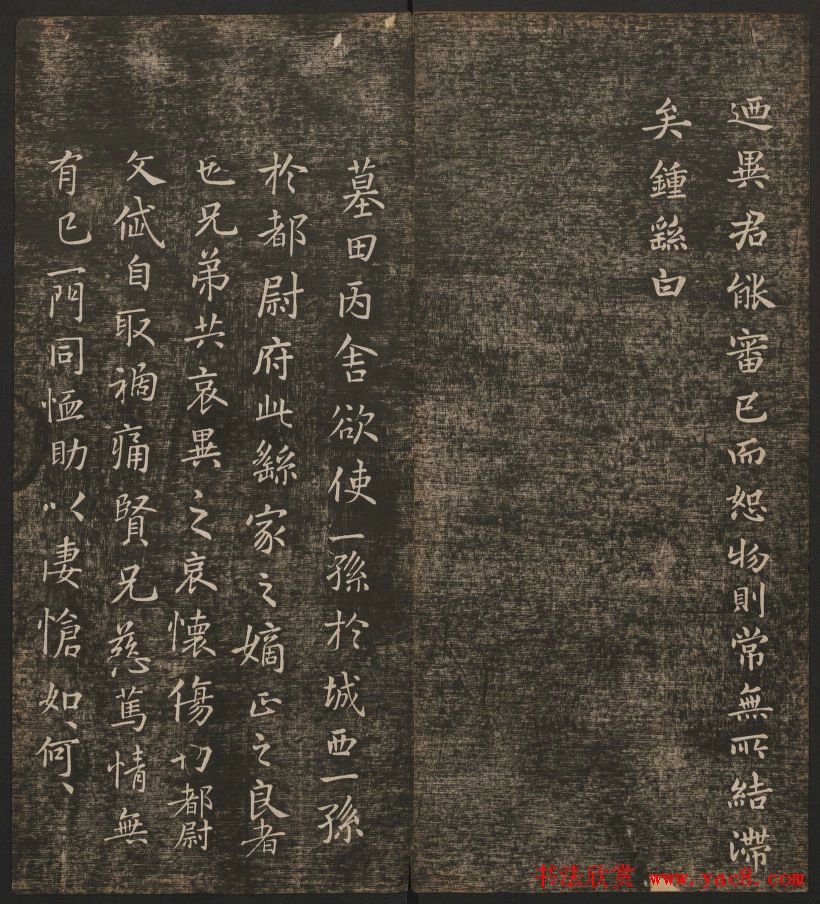 迺異君能審己而恕物則常無所結滯
矣鍾繇白
墓田丙舍欲使一孫於城西一孫
於都尉府此繇家之嫡正之良者
也兄弟共哀異之哀懷傷切都尉
文岱自取禍痛賢兄慈篤情無
有已一門同恤助以悽愴如何如何
书法欣赏 www.yac8.com